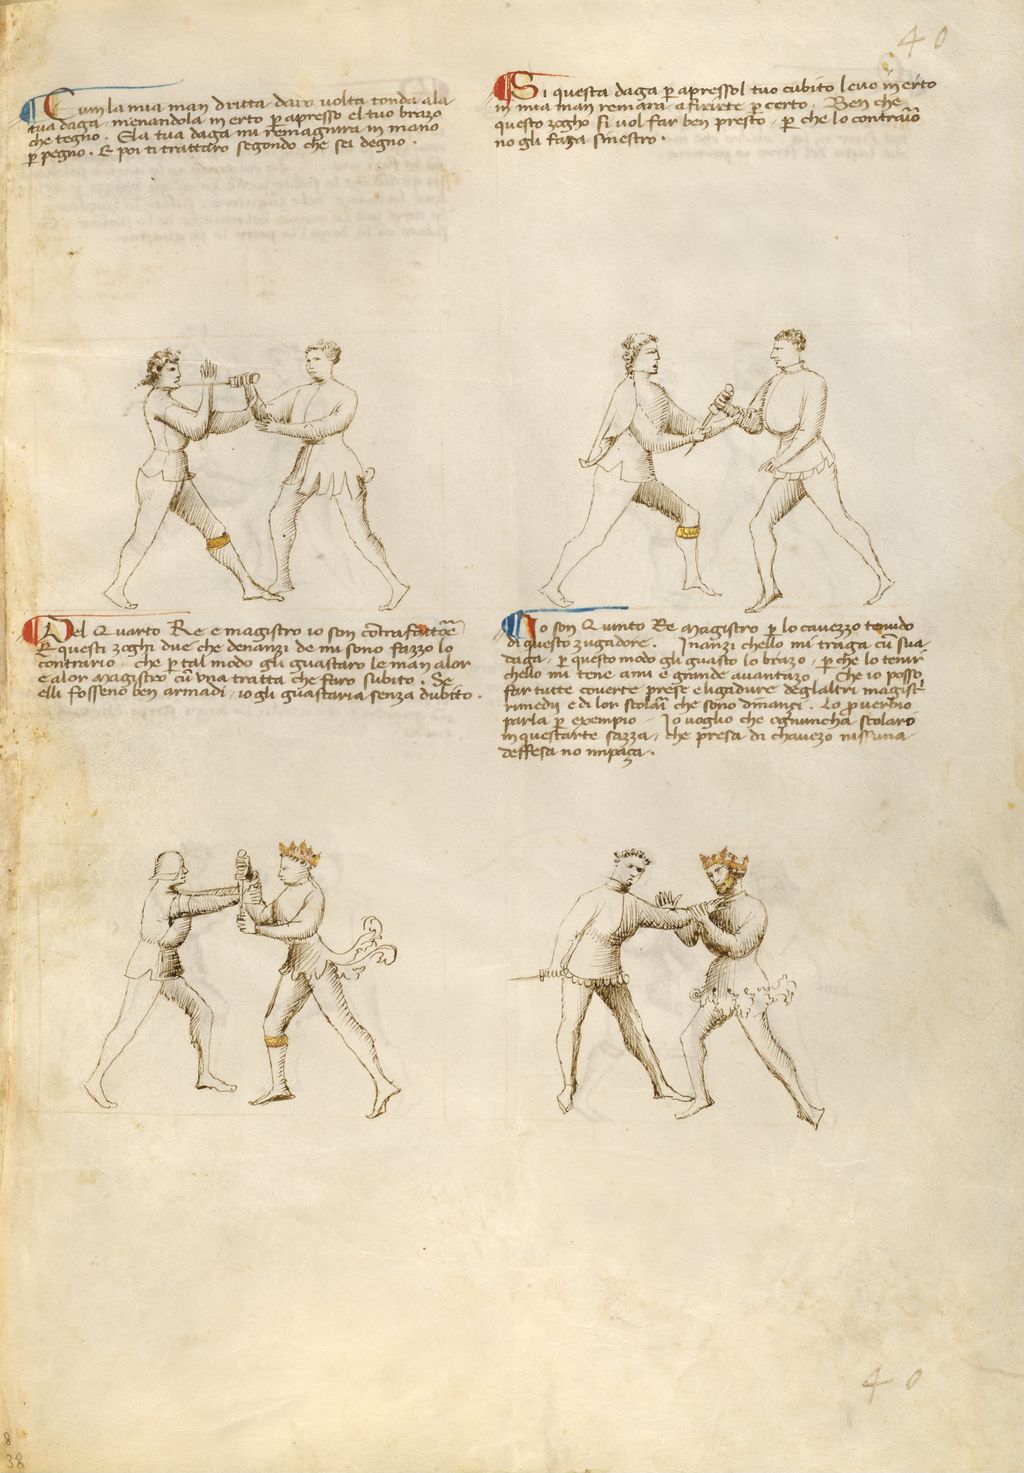 40
Cum la mia man dritta daro volta tonda a la
tua daga, menandola in erto p apresso el tuo brazo
che tegno. E la tua daga mi remagnira in mano
p pegno. E poi ti trattaro segondo che sei degno.
Si questa daga p apressol tuo cubito levo in erto
in mia man remara a firirte p certo. Ben che
questo zogho si vol far ben presto, p che lo contraiō
no gli faza sinestro.
Del Quarto Re e magistro io son
E questi zoghi due che denanzi de mi sono fazzo lo
contrario, che p tal modo gli guastaro le man a lor
e a lor Magistro cū una tratta che faro subito. Se
elli fosseno ben armadi, io gli guastaria senza dubito.
Io son Quinto Re Magistro p lo cavezzo tenudo
di questo zugadore. Inanzi chello mi traga cū sua
daga, p questo modo gli guasto lo brazo, p che lo tenir
chello mi tene a mi e grande avantazo. Che io posso
far tutte coverte prese e ligadure deglaltri magistī
rimedii e di lor scolaī che sono dinanzi. Lo proverbio
parla p exempio. Io voglio che ognuncha scolaro
in questarte sazza, che presa di chavezo nissuna
deffesa no impaza.
40
8
38